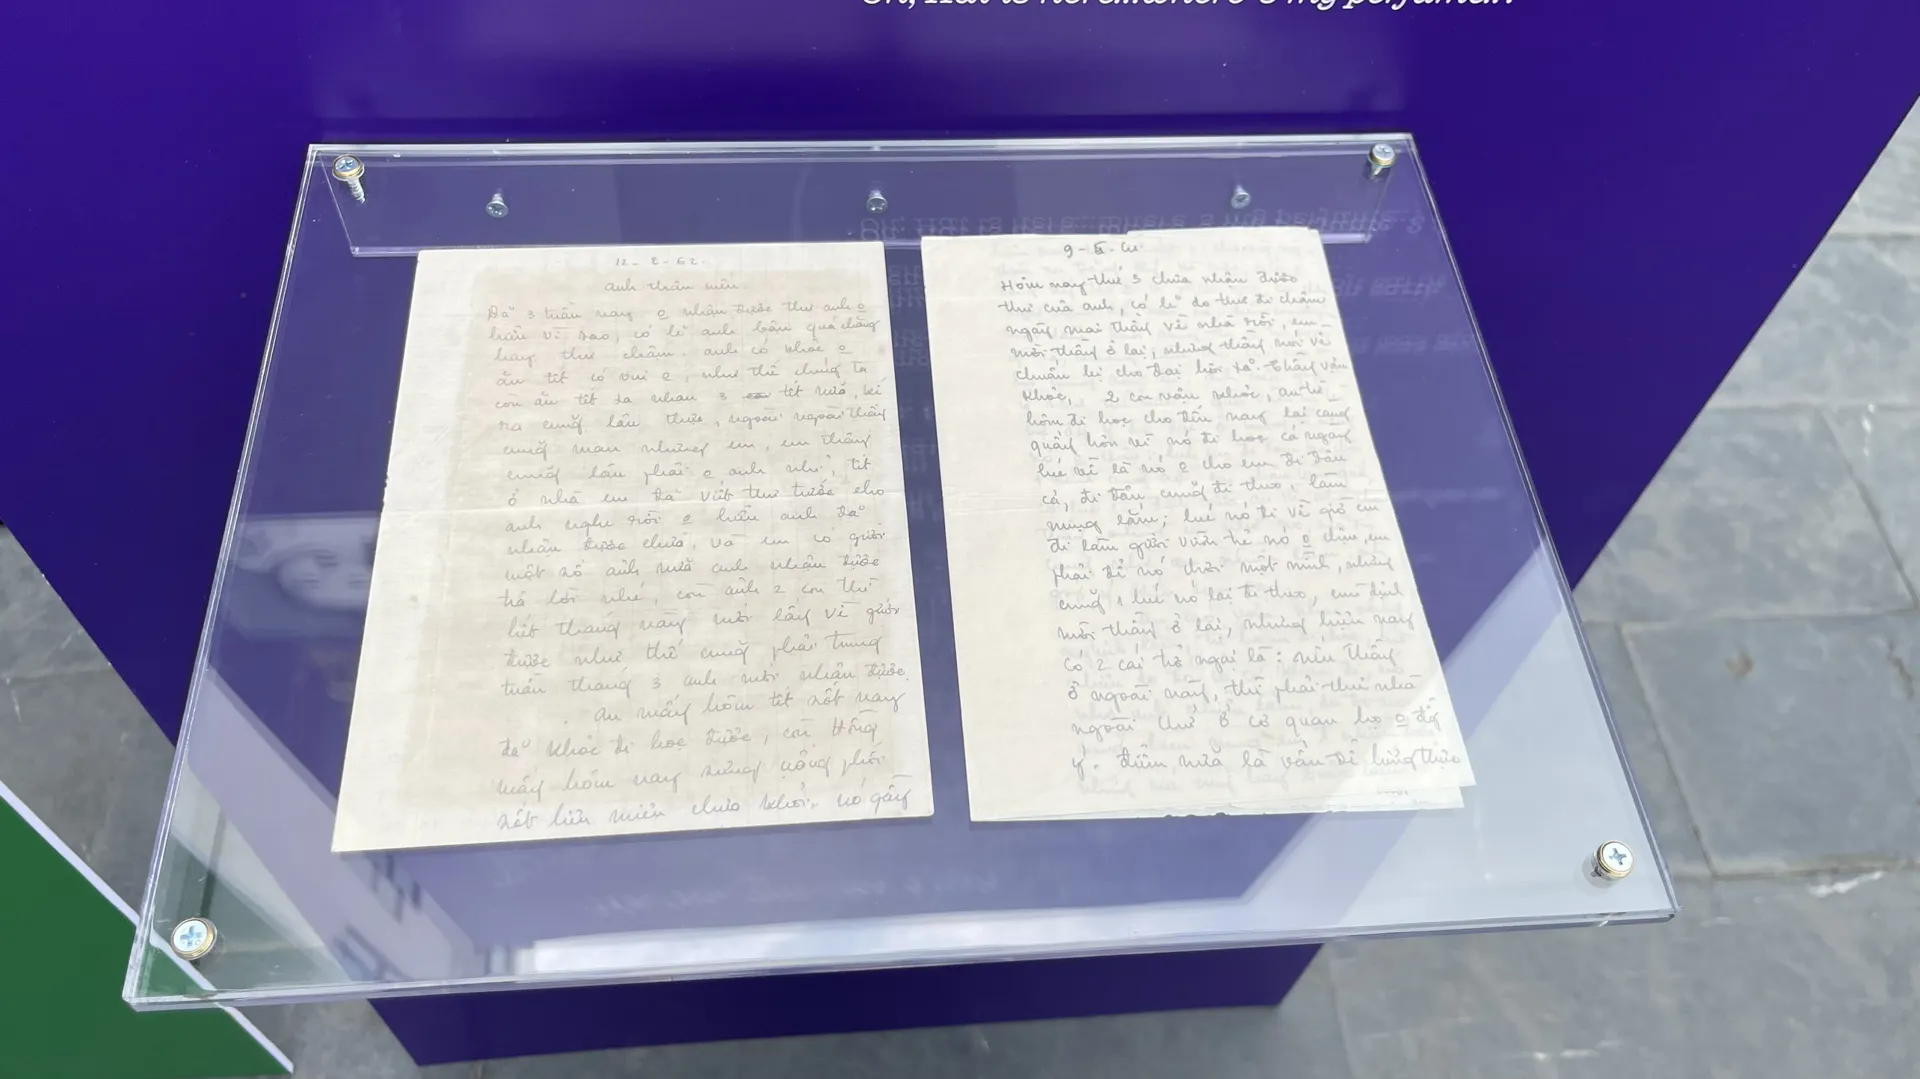 12-2-62.
anh thân mến.
Đã 3 tuần nay o nhận được thư anh o
hiểu vì sao, có lẽ anh bận quá chăng
hay thư chậm. anh có khỏe o
ăn tết có vui o, như thế chúng ta
còn ăn tết xa nhau 3 tết nữa, kể
ra cũng lâu thực, ngoài ngoài thấy
cũng mau nhưng em, em thấy
cũng lâu phải o anh nhỉ, tết
ở nhà em đã viết thư trước cho
anh nghe rồi o hiểu anh đã
nhận được chưa, và em có gửi
một số ảnh nữa anh nhận được
trả lời nhé, còn ảnh 2 con thì
hết tháng này mới lấy về gửi
được như thế cũng phải trung
tuần tháng 3 anh mới nhận được.
An mấy hôm tết sốt nay
đã khỏe đi học được, còn Hồng
mấy hôm nay sưng cuống phổi
sốt liên miên chưa khỏi, nó gầy
9-5-
Hôm nay thứ 3 chưa nhận được
thư của anh, có lẽ do thư đi chậm
ngày mai thầy về nhà rồi, em
mời thầy ở lại, nhưng thầy nói về
chuẩn bị cho đại hội xã. Thầy vẫn
khỏe, 2 con vẫn khỏe, an từ
hôm đi học cho đến nay lại càng
quấy hơn vì nó đi học cả ngày
lúc về là nó o cho em đi đâu
cả, đi đâu cũng đi theo, làm
nũng lắm; lúc nó đi về giờ em
đi làm gửi vườn trẻ nó o chịu, em
phải để nó chơi một mình, nhưng
cũng 1 lúc nó lại đi theo, em định
mời thầy ở lại, nhưng hiện nay
có 2 cái trở ngại là: nếu thầy
ở ngoài này, thì phải thuê nhà
ngoài chứ ở cơ quan họ o đồng
ý. điểm nữa là vấn đề lương thực